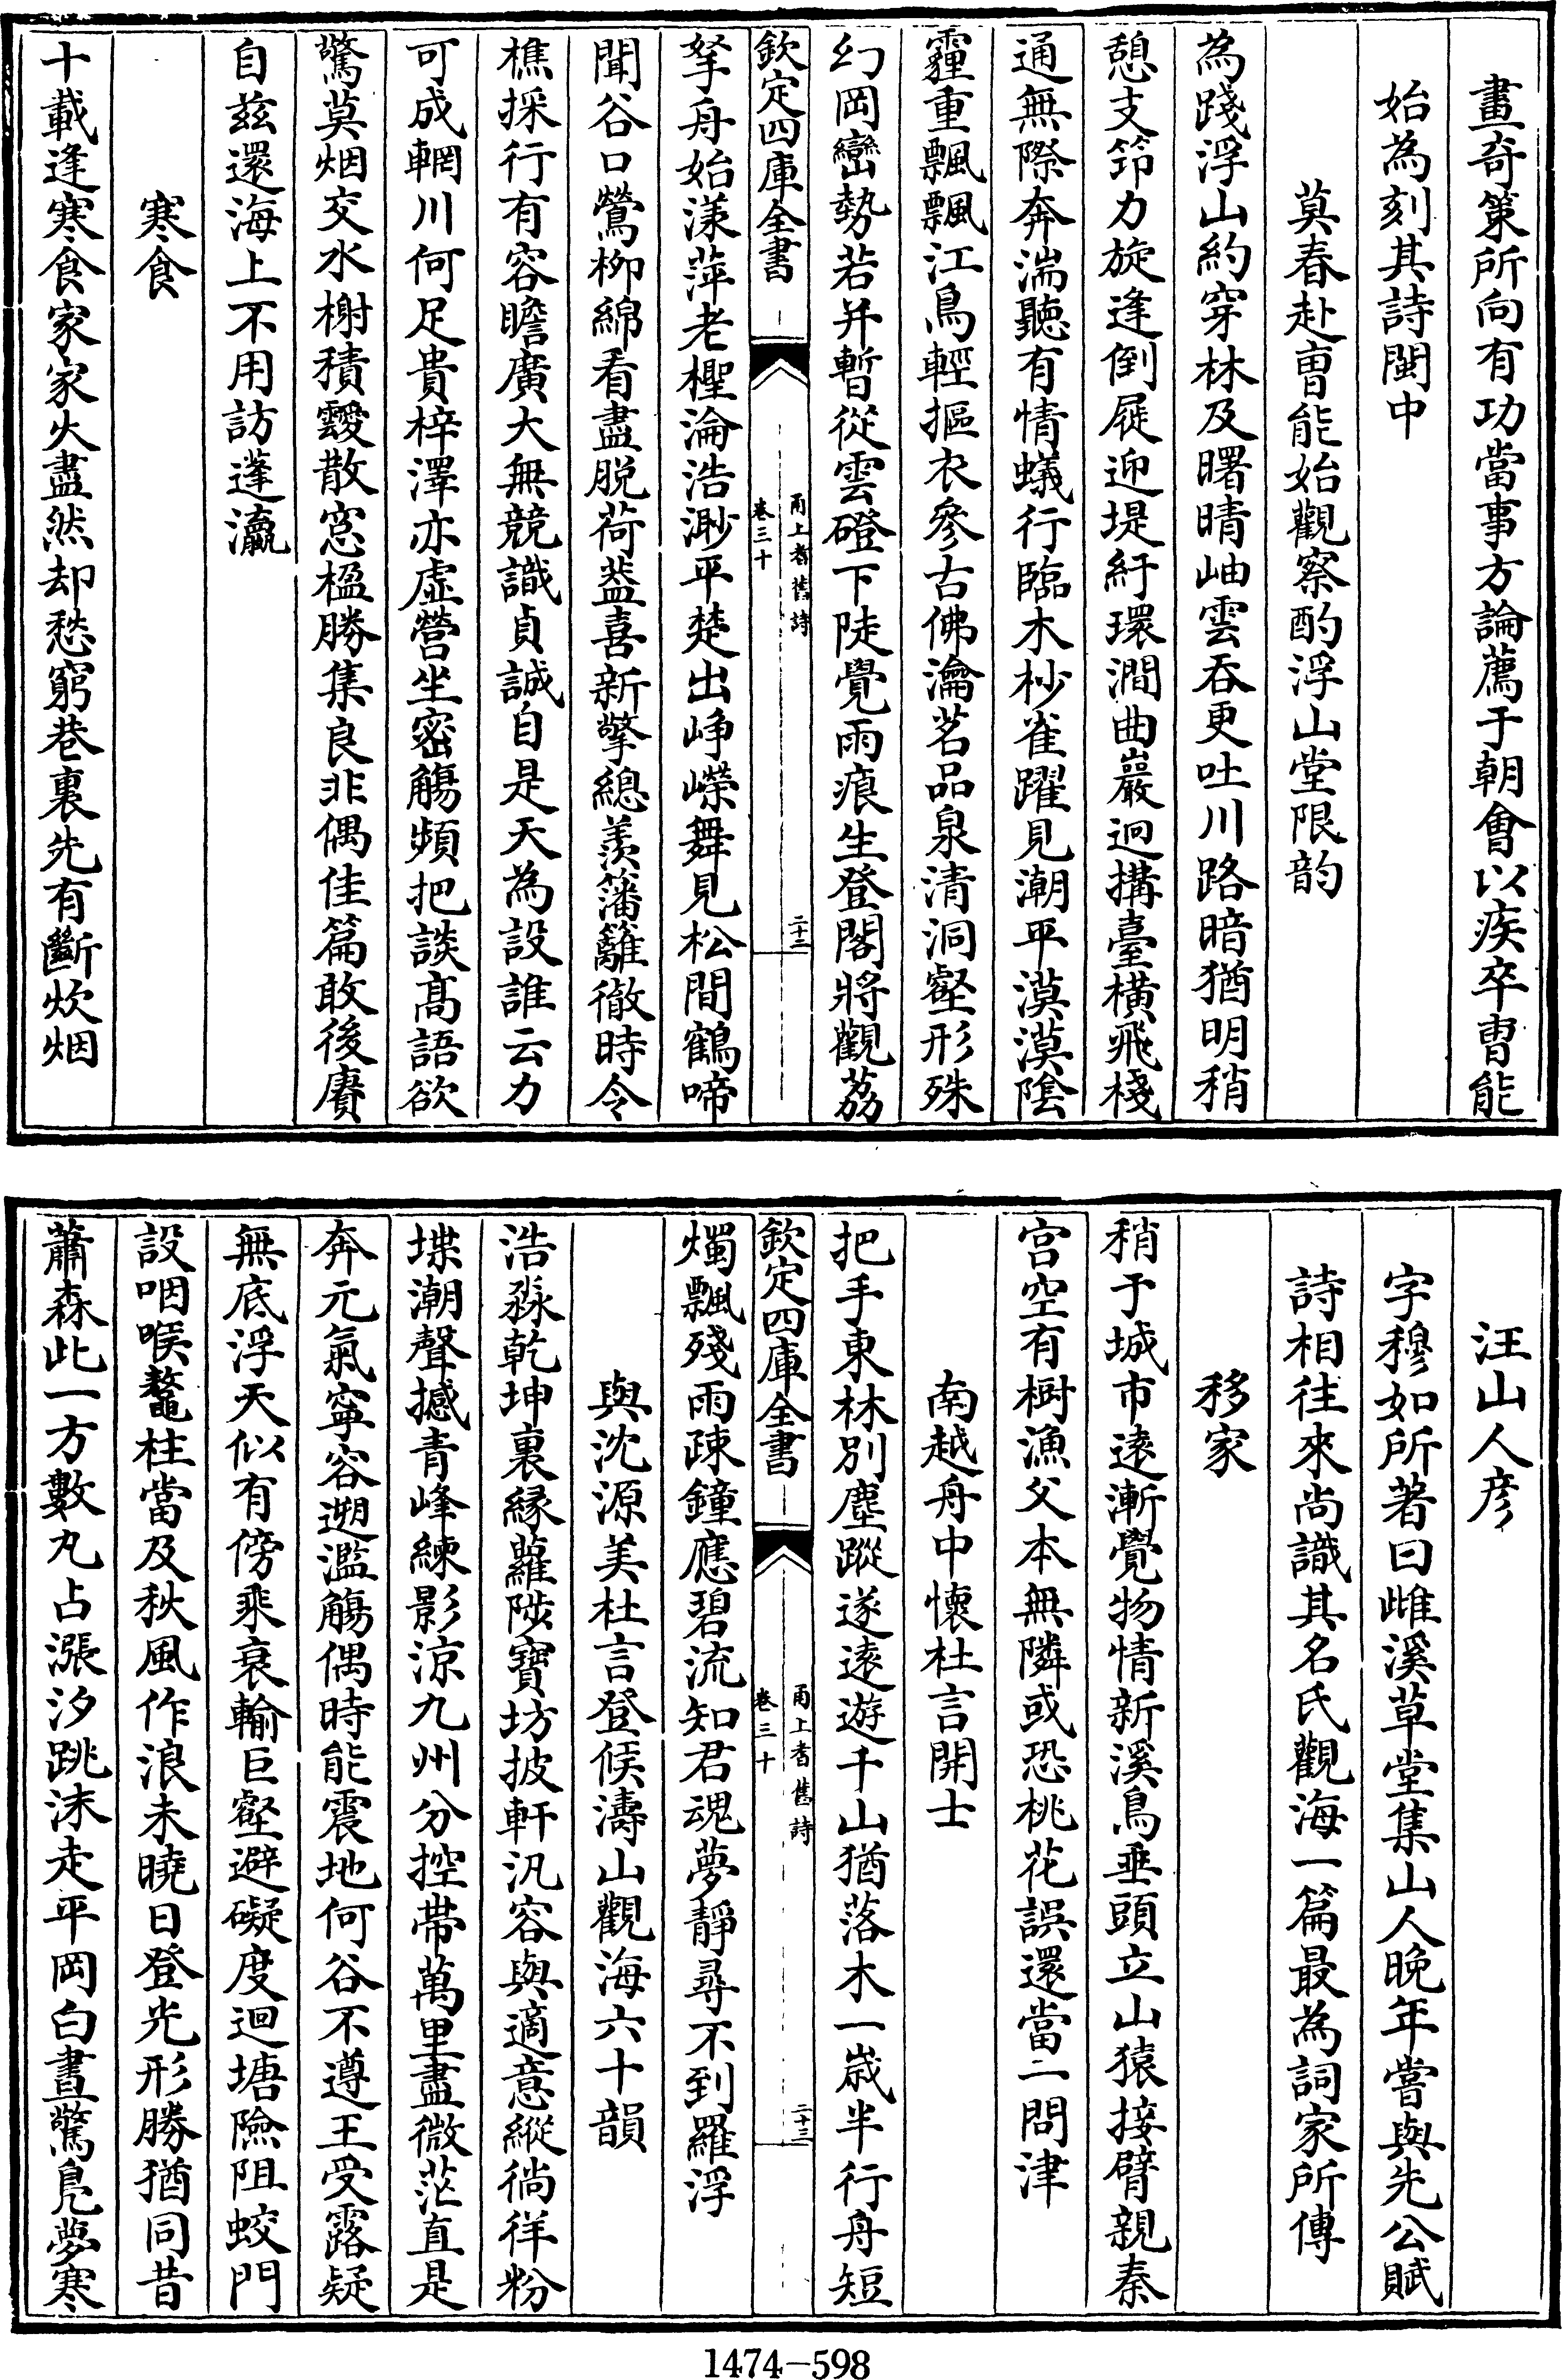 畫奇策所向有功當事方論薦于朝會以疾卒曺能
始為刻其詩閩中
莫春赴曺能始觀察酌浮山堂限韵
為踐浮山約穿林及曙晴岫雲吞更吐川路暗猶明稍
憩支筇力旋逢倒屣迎堤紆環澗曲巖迥搆臺橫飛棧
通無際奔湍聽有情蟻行臨木杪雀躍見潮平漠漠陰
霾重飄飄江鳥輕摳衣參古佛瀹茗品泉清洞壑形殊
幻岡巒勢若并暫從雲磴下陡覺雨痕生登閣將觀荔
欽定四庫全書
甬上耆舊詩
卷三十
二十二
拏舟始漾萍老檉淪浩渺平楚出崢嶸舞見松間鶴啼
聞谷口鶯柳綿看盡脱荷葢喜新擎總羡籓籬徹時令
樵採行有容瞻廣大無競識貞誠自是天為設誰云力
可成輞川何足貴梓澤亦虛營坐密觴頻把談髙語欲
驚莫烟交水榭積靉散窓楹勝集良非偶佳篇敢後賡
自兹還海上不用訪蓬瀛
寒食
十載逢寒食家家火盡然却愁窮巷裏先有斷炊烟
汪山人彦
字穆如所著曰雎溪草堂集山人晚年嘗與先公賦
詩相往來尚識其名氏觀海一篇最為詞家所傳
移家
稍于城市逺漸覺物情新溪鳥垂頭立山猿接臂親秦
宫空有樹漁父本無隣或恐桃花誤還當一問津
南越舟中懷杜言開士
把手東林別塵蹤遂逺遊千山猶落木一嵗半行舟短
欽定四庫全書
甬上耆舊詩
卷三十
二十三
燭飄殘雨疎鐘應碧流知君魂夢靜尋不到羅浮
與沈源美杜言登候濤山觀海六十韻
浩淼乾坤裏緣蘿陟寶坊披軒汎容與適意縱徜徉粉
堞潮聲撼青峰練影涼九州分控帶萬里盡微茫直是
奔元氣寧容遡濫觴偶時能震地何谷不遵王受露疑
無底浮天似有傍乘衰輸巨壑避礙度迴塘險阻蛟門
設咽喉鼇柱當及秋風作浪未曉日登光形勝猶同昔
蕭森此一方數丸占漲汐跳沫走平岡白晝驚鳬夢寒
1474-598